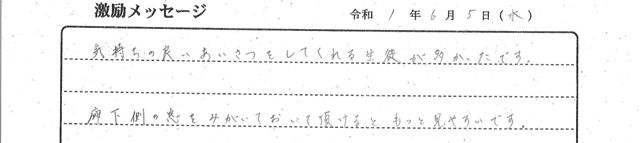 激励メッセージ
令和 1 年 6 月 5 日 (水)
気持ちの良いあいさつをしてくれる生徒が多かったです。
廊下側の窓をみがいておいて頂けるともっと見やすいです。